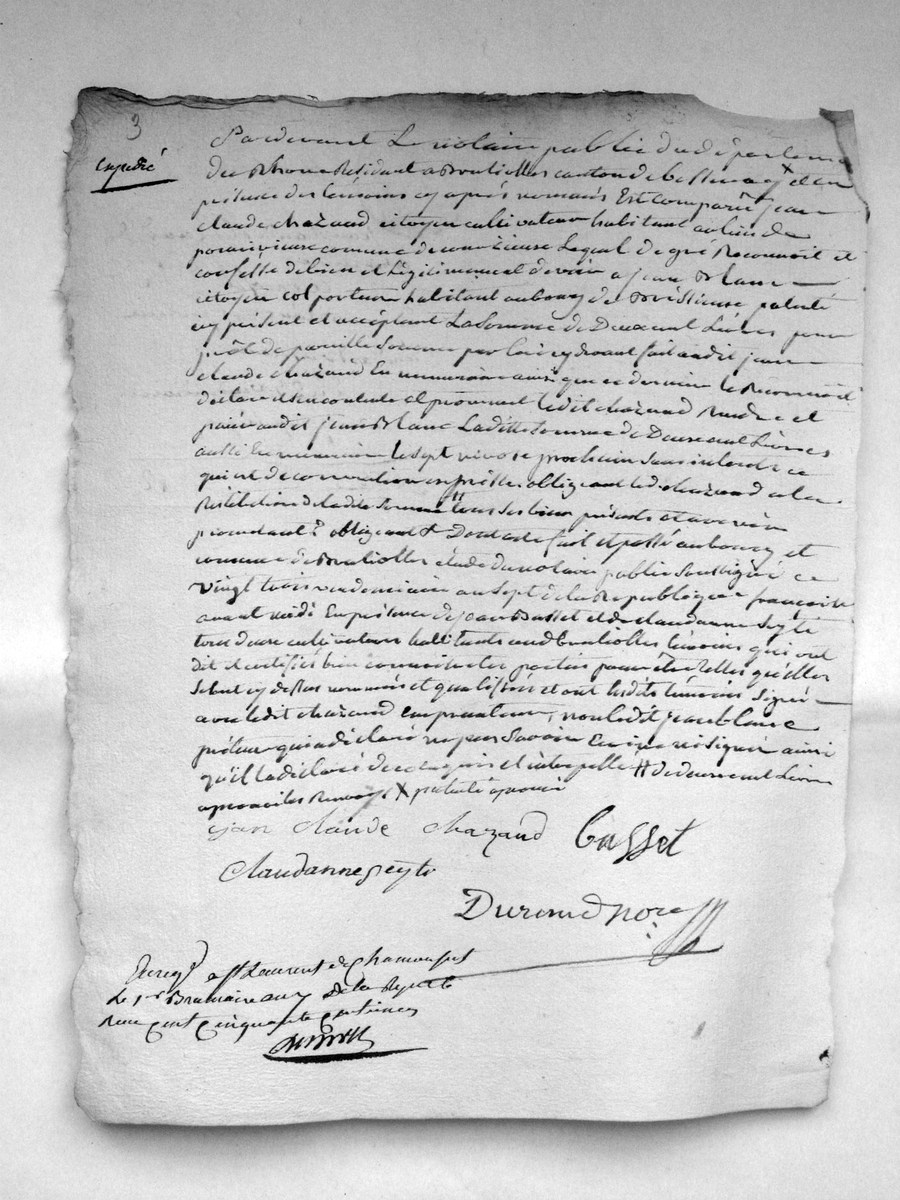 3
expedié
Pardevant Le notaire public du departeme
du Rhone Residant a Brullioles canton de bessenay X et en
présence des témoins cy après nommés Est comparu jean
claude chazaud citoyen cultivateur habitant au lieu de
commune de Lequel de gré Reconnoit et
confesse debien et légitimement devoir a jean Blanc
citoyen colporteur habitant au bourg de Brussieux patenté
icy présent et acceptant La Somme de Deux cent Livres pour
prêt de pareille Somme par lui cy devant fait audit jean
claude chazaud En numeraire ainsi que ce dernier le Reconnoit
déclare et sen contente et promet ledit chazaud Rendre et
paier audit jean Blanc Laditte Somme de Deux cent Livres
aussi En numeraire le sept nivose prochain Sans interets ce
qui est de convention expresse obligeant led. chazaud a la
Restitution de ladite Somme # tous ses biens présents et avenir
promettant obligeant Dont acte fait et passé au bourg et
commune de Brullioles étude du notaire public Soussigné ce
vingt trois vendemiaire an Sept de la Republique francoise
avant midi En présence de jean Basset et de claudanne Seyte
tous deux cultivateurs habitants aud. Brullioles témoins qui ont
dit et certifié bien connoitre les parties pour être telles qu'elles
Sont cy dessus nommés et qualifiés et ont lesdits témoins Signé
avec ledit chazaud Emprunteur, non ledit jean blanc
préteur qui a déclaré ne pas Savoir Ecrire ni Signer ainsi
qu'il l'a déclaré de ce requis et interpellé # de deux cent Livres
aprouvé les Renvoys X patenté aprouvé
jan claude chazaud Basset
claudanne seyte
Durand nore
Enregé a St Laurent de Chamousset
Le 1er Brumaire an 7 de la Republe
Recu Cent Cinquante Centimes